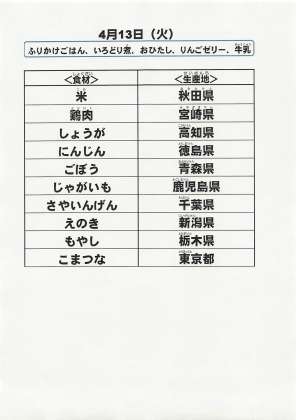 4月13日（火）
ふりかけごはん、いろどり煮、おひたし、りんごゼリー、牛乳
＜食材＞ ＜生産地＞
米 秋田県
鶏肉 宮崎県
しょうが 高知県
にんじん 徳島県
ごぼう 青森県
じゃがいも 鹿児島県
さやいんげん 千葉県
えのき 新潟県
もやし 栃木県
こまつな 東京都